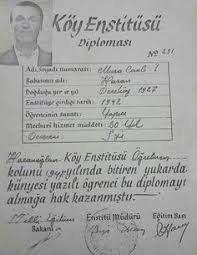 Köy Enstitüsü
Diploması
No 231
Adı, soyadı numarası
Babasının adı
Doğduğu yer ve yıl 1927
Enstitüye girdiği tarih 1942
Öğrencinin sanatı Yapıcı
Mecburi hizmet müddeti 20 Yıl
Derecesi İyi
Köy Enstitüsü Öğretmen
kolunu yılında bitiren yukarda
künyesi yazılı öğrenci bu diplomayı
almağa hak kazanmıştır.
Milli Eğitim Enstitü Müdürü Eğitim
Bakanı